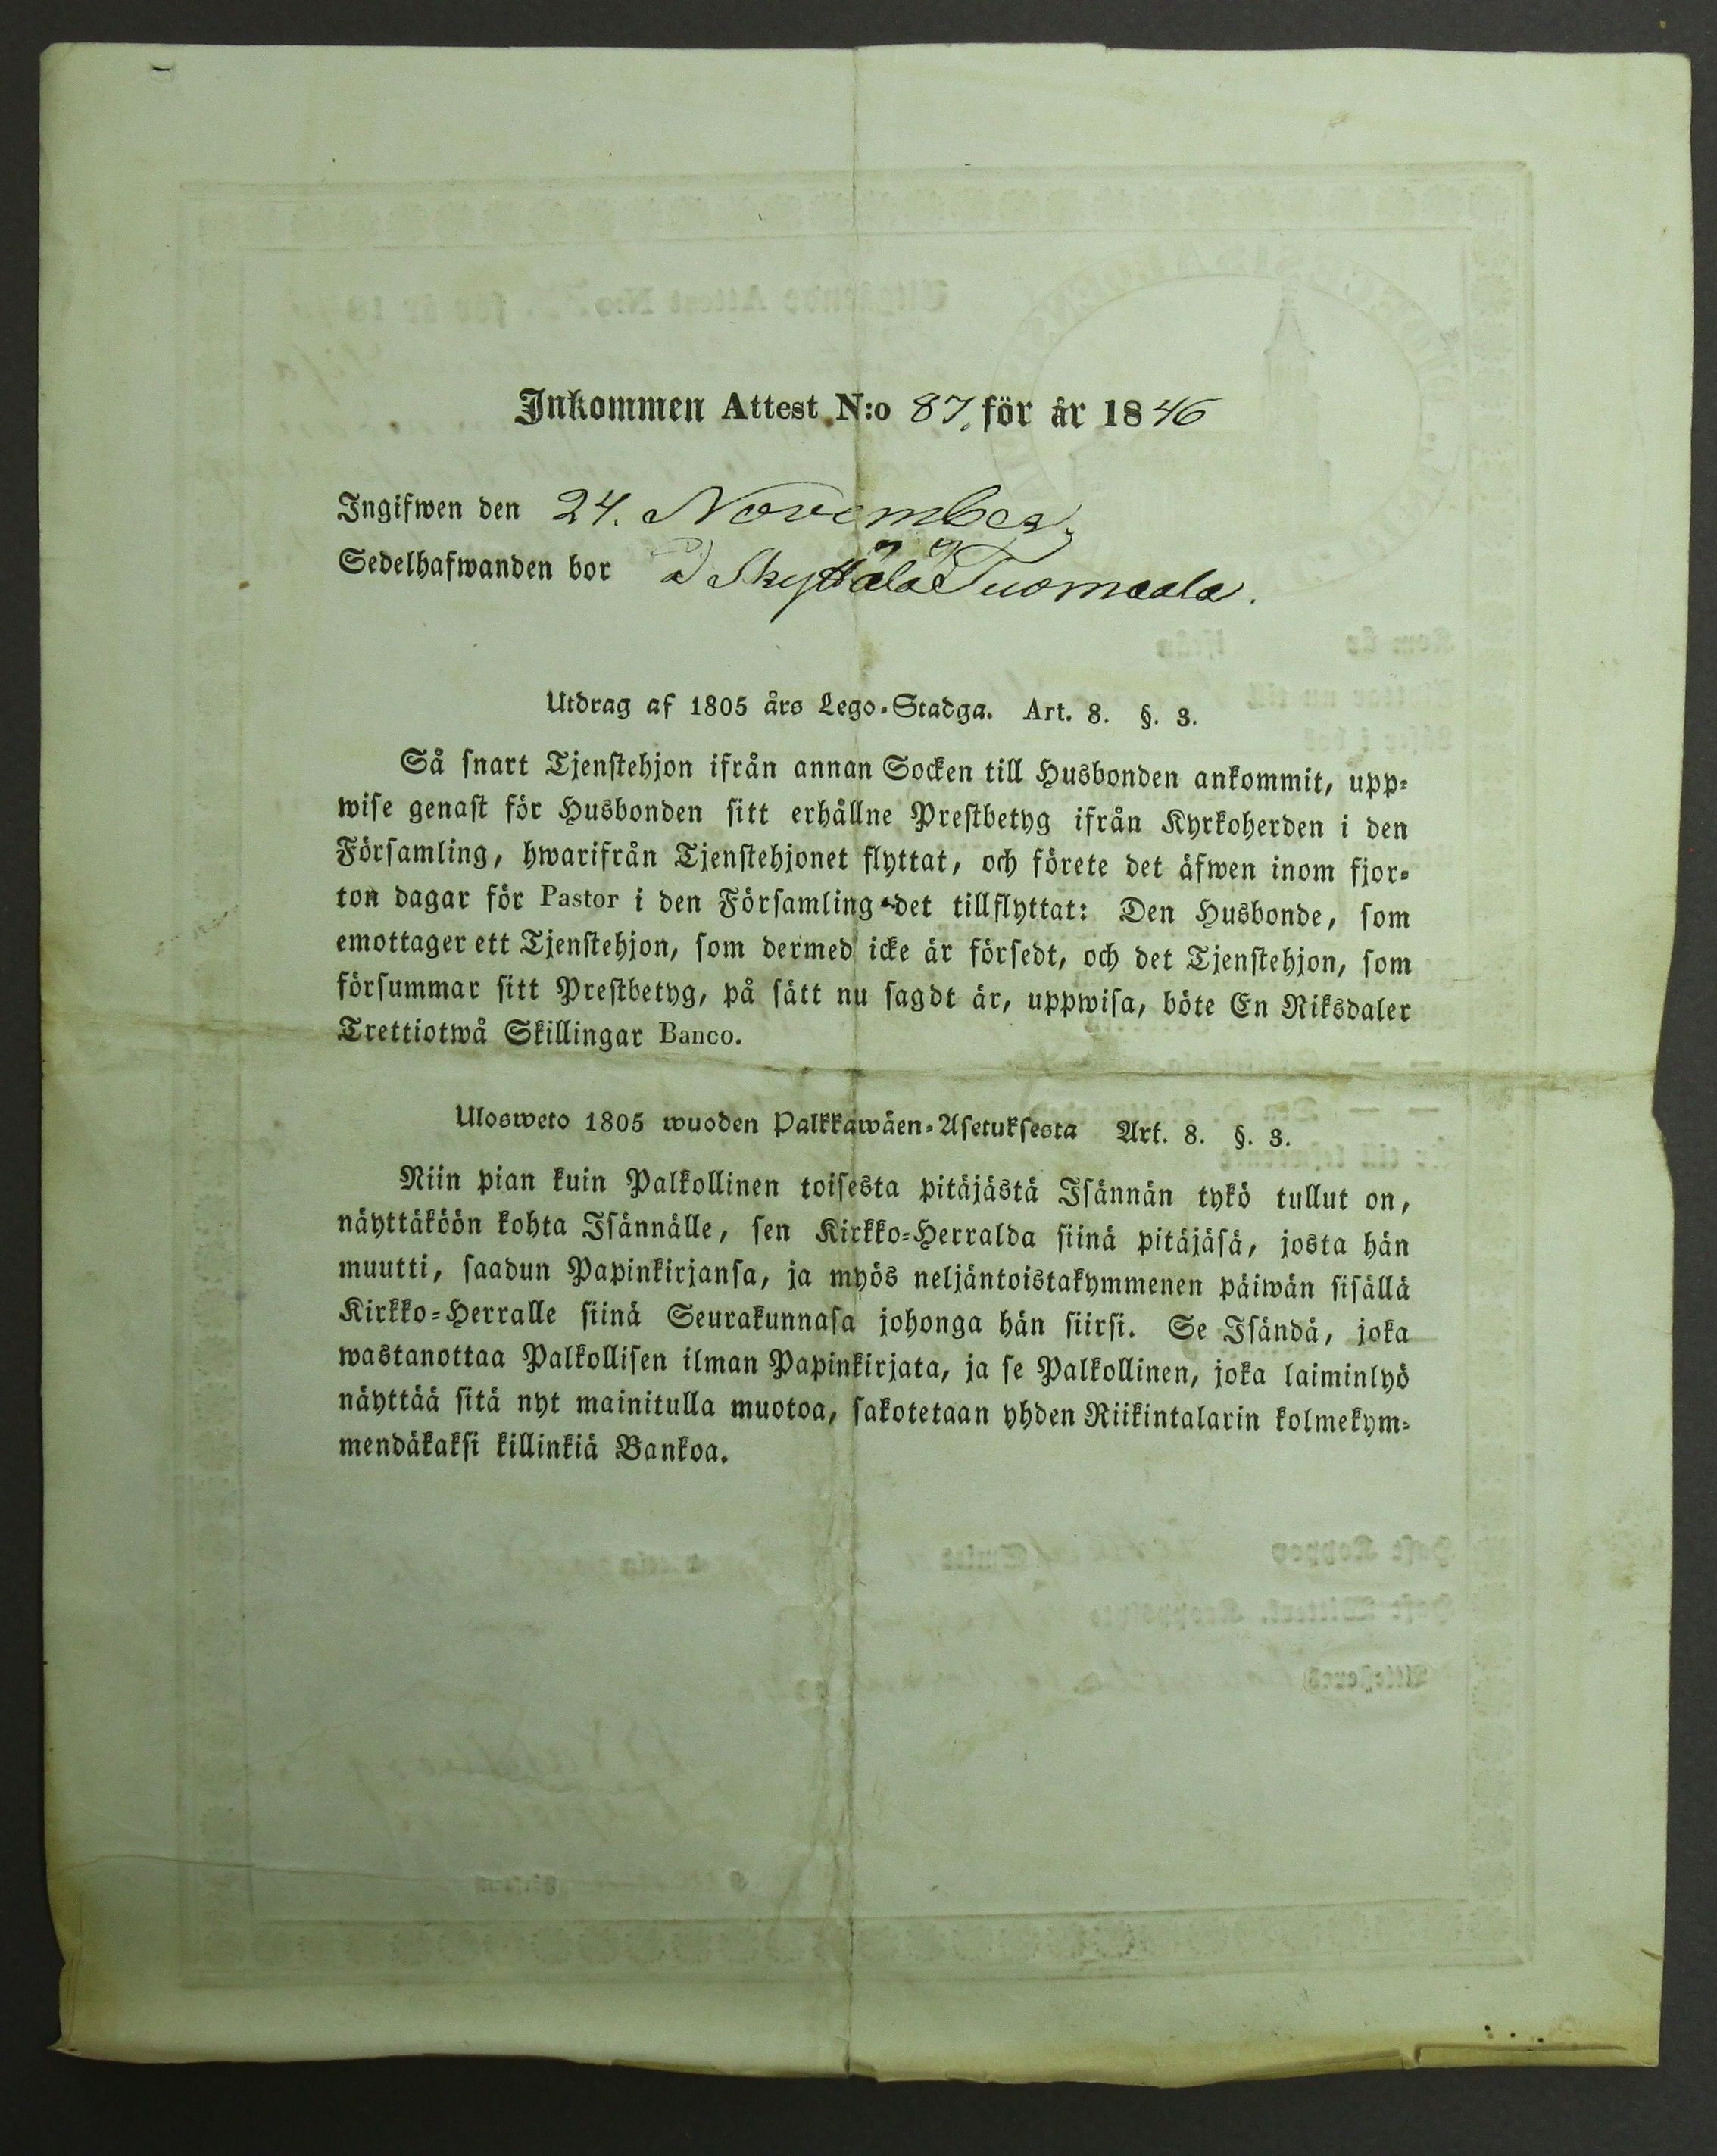 Inkommen Attest N:o 87. för år 1846
Ingifwen den 24. November
Sedelhafwanden bor å Skyttälä Tuomaala.
Utdrag af 1805 års Lego-Stadga. Art. 8. §. 3.
Så snart Tjenstehjon ifrån annan Socken till Husbonden ankommit, upp-
wise genast för Husbonden sitt erhållne Prestbetyg ifrån Kyrkoherden i den
Församling, hwarifrån Tjenstehjonet flyttat, och förete det äfwen inom fjor-
ton dagar för Pastor i den Församling det tillflyttat: Den Husbonde, som
emottager ett Tjenstehjon, som dermed icke är försedt, och det Tjenstehjon, som
försummar sitt Prestbetyg, på sätt nu sagdt är, uppwisa, böte En Riksdaler
Trettiotwå Skillingar Banco.
Ulosweto 1805 wuoden Palkkawäen-Asetuksesta Art. 8. §. 3.
Niin pian kuin Palkollinen toisesta pitäjästä Isännän tykö tullut on,
näyttäköön kohta Isännälle, sen Kirkko-Herralda siinä pitäjäsä, josta hän
muutti, saadun Papinkirjansa, ja myös neljäntoistakymmenen päiwän sisällä
Kirkko-Herralle siinä Seurakunnasa johonga hän siirsi. Se Isändä, joka
wastanottaa Palkollisen ilman Papinkirjata, ja se Palkollinen, joka laiminlyö
näyttää sitä nyt mainitulla muotoa, sakotetaan yhden Riikintalarin kolmekym-
mendäkaksi killinkiä Bankoa.